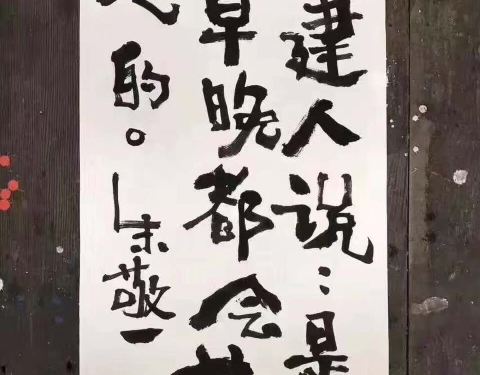 建人说：是
早晚都会
的。
朱敬一